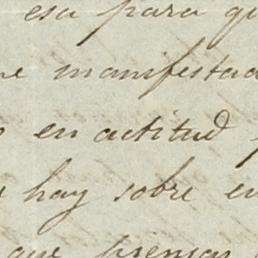 esa para qu
e manifestad
en actitud
hay sobre en
que prensar